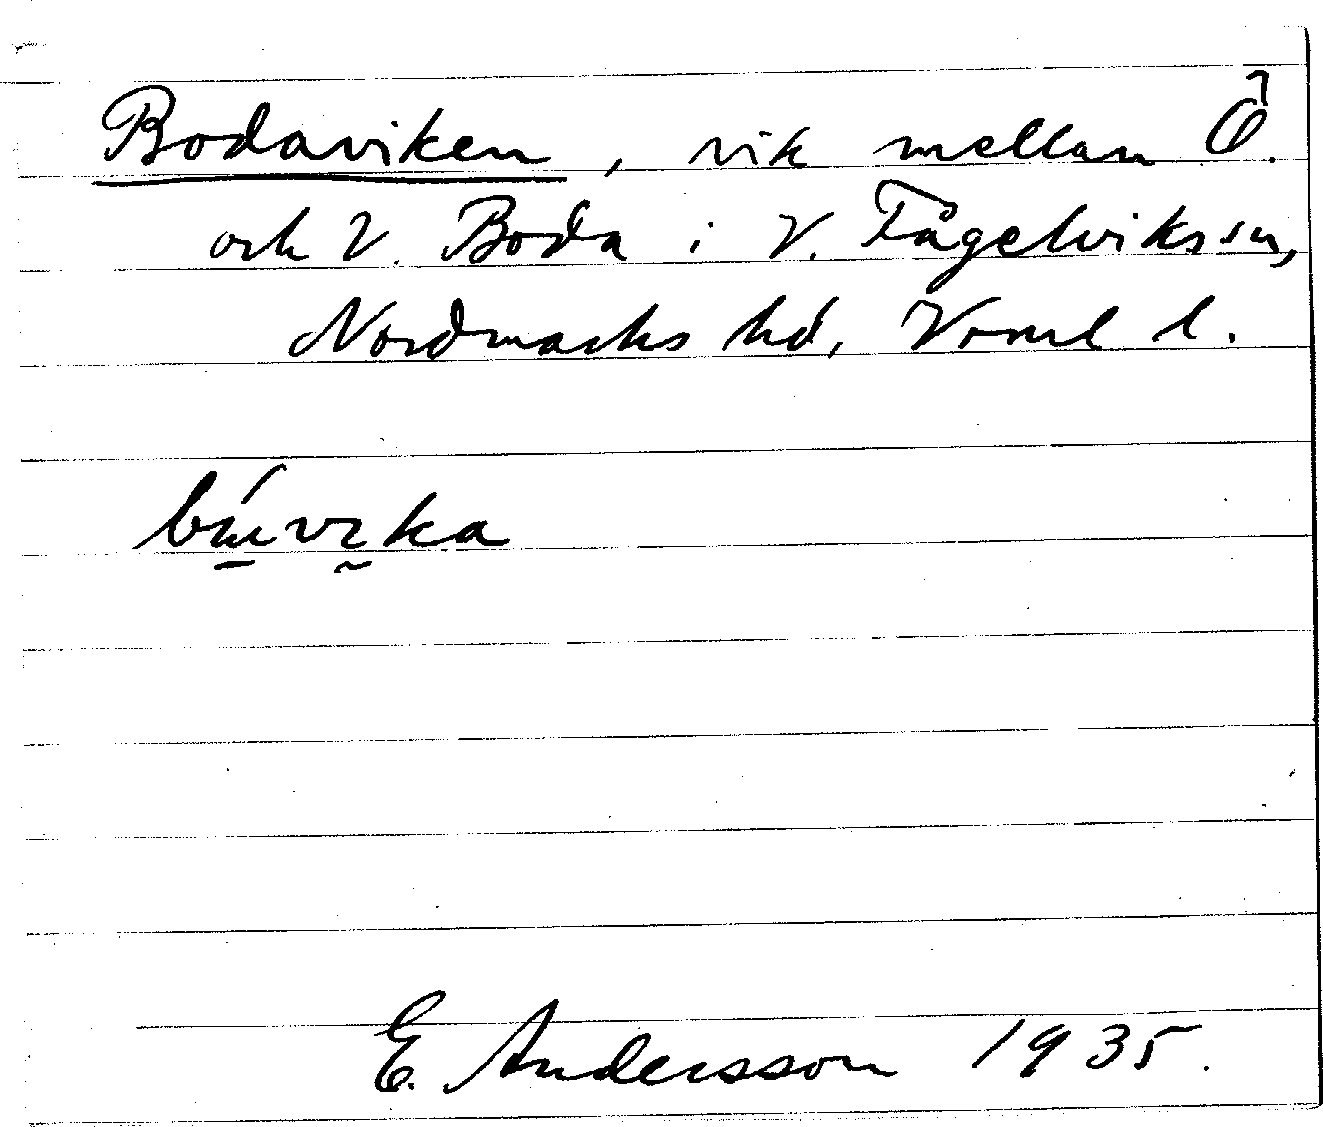 Bodaviken, vik mellan Ö.
och V. Boda i V. Fågelviks sn,
Nordmarks hd, Vrml l.
E. Andersson 1935.